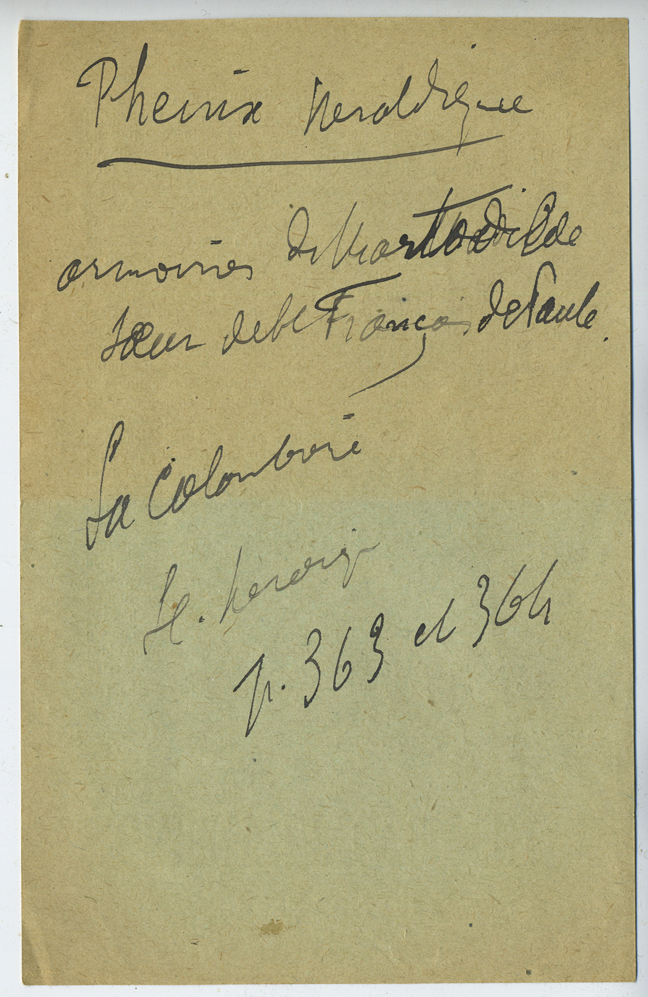 Phenix heraldique
armoiries de
soeur de St François de Paule.
La Colombiere
Sc. heroiq
p. 363 et 364